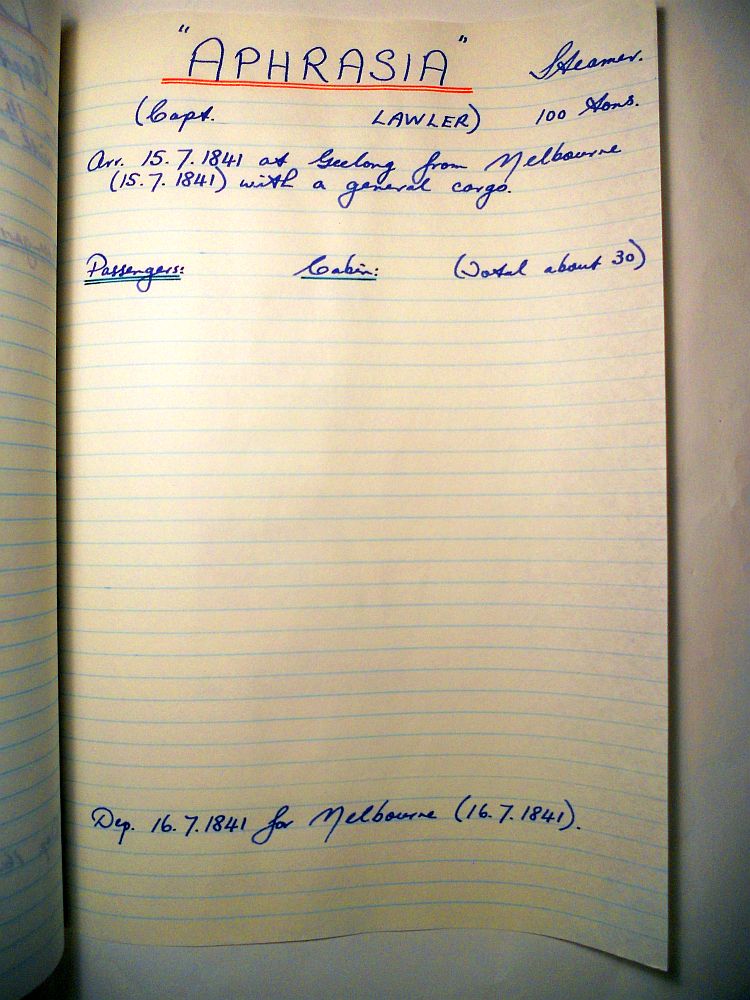 "APHRASIA" Steamer.
(Capt. LAWLER) 100 tons.
Arr. 15.7.1841 at Geelong from Melbourne
(15.7.1841) with a general cargo.
Passengers: Cabin: (Total about 30)
Dep. 16.7.1841 for Melbourne (16.7.1841).